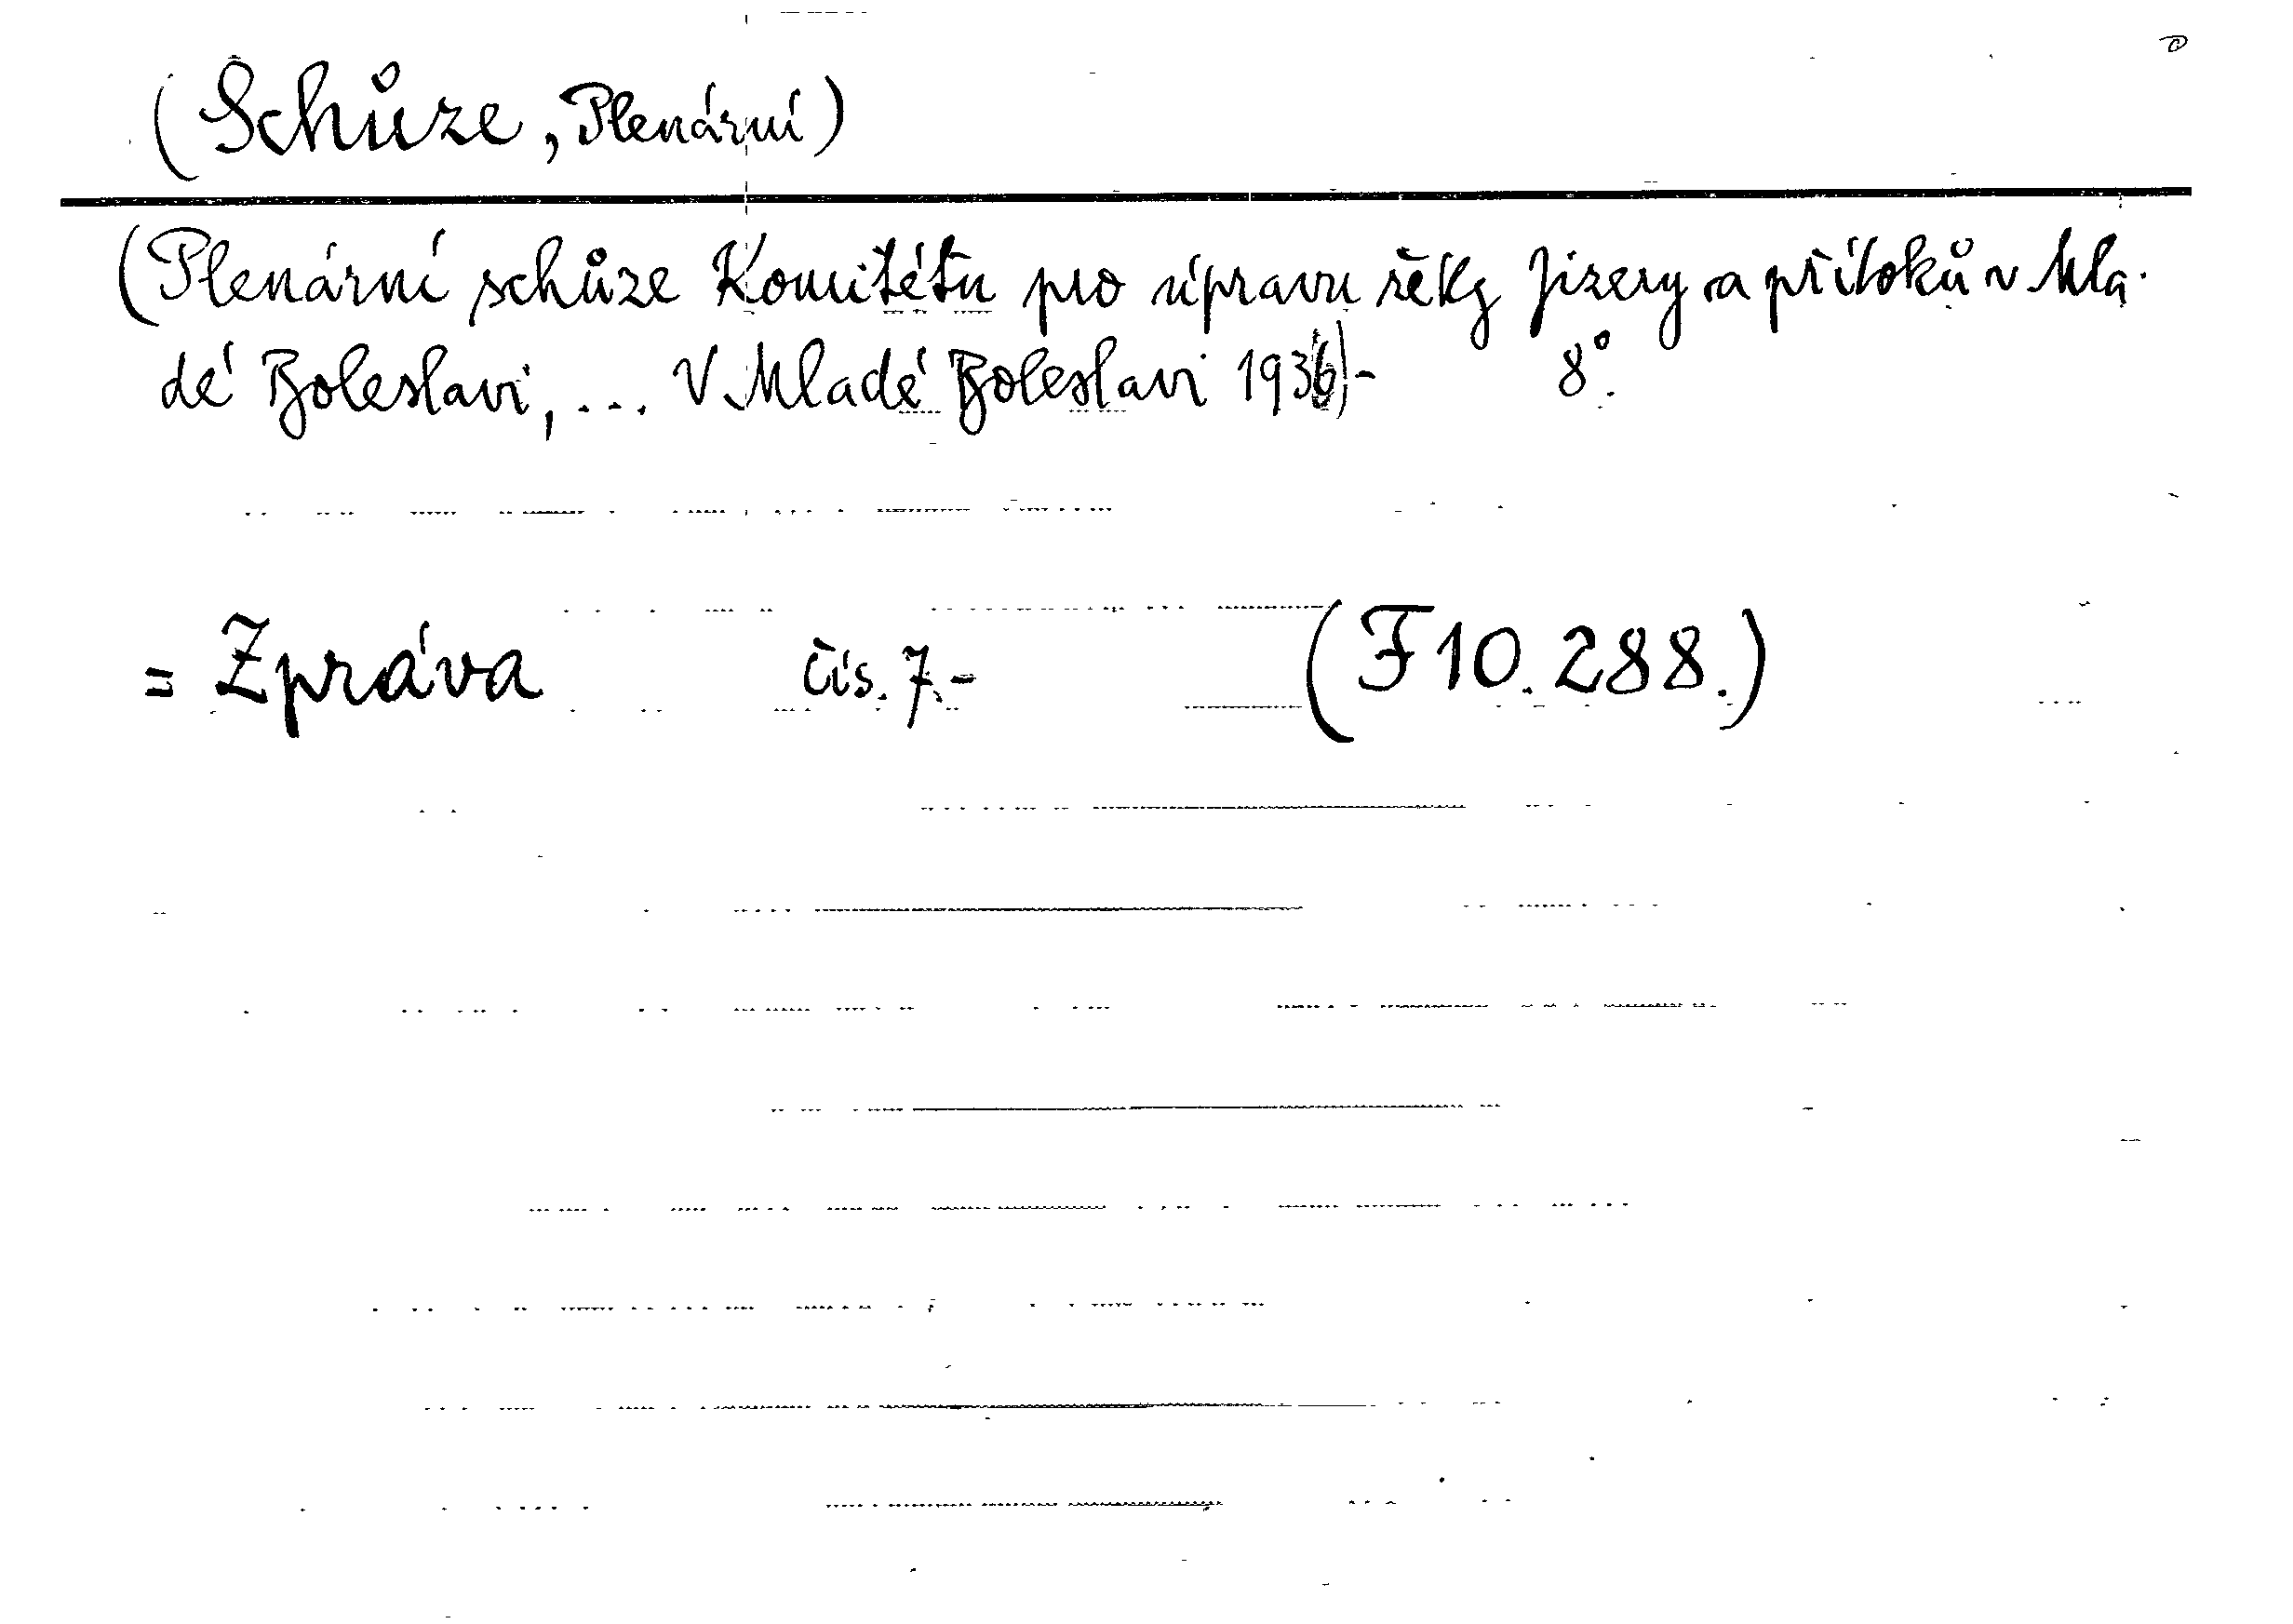 (Schůze, Plenární)
(Plenární schůze Komitétu pro úpravu řeky Jizery a přítoků v Mla-
dé Boleslavi, ... V Mladé Boleslavi 1936)- 8°.
= Zpráva čís. 7.- (F 10.288.)